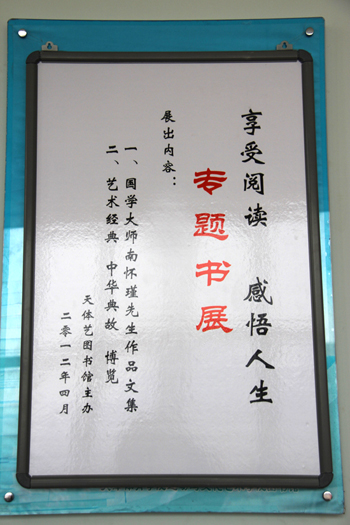 享受阅读 感悟人生
专题书展
展出内容：
一、国学大师南怀瑾先生作品文集
二、艺术经典 中华典故 博览
天体艺图书馆主办
二零一二年四月